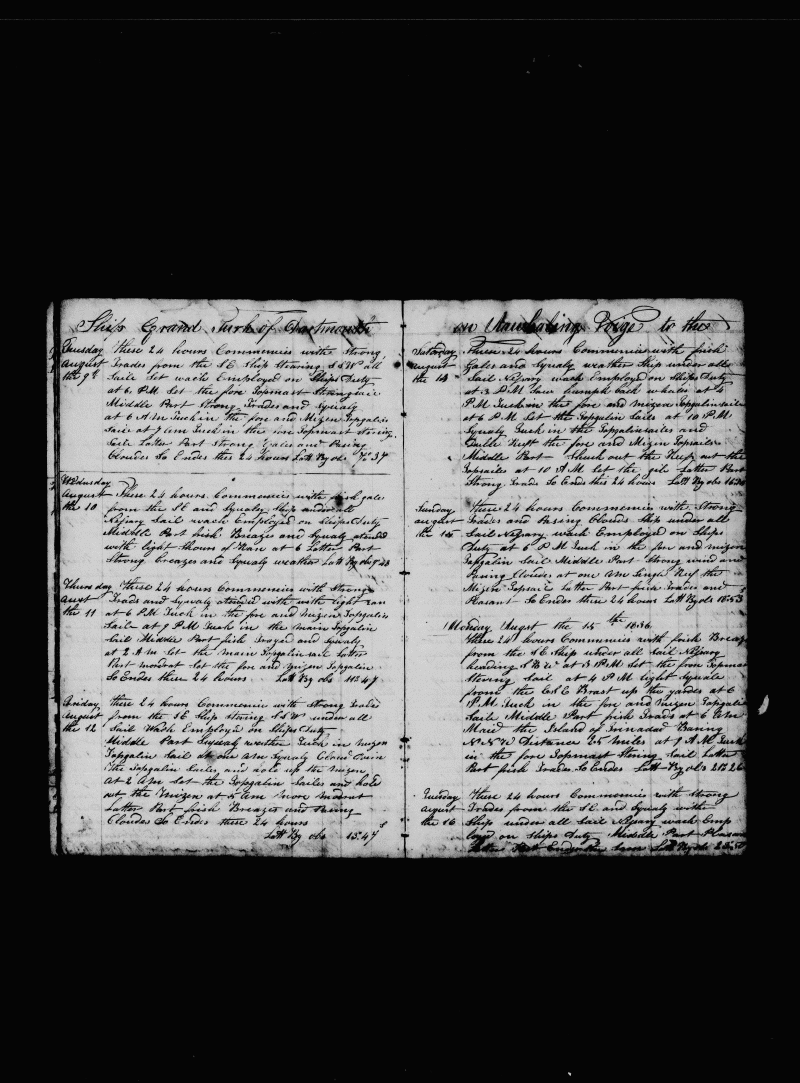 Ship Grand Turk of Dartmouth
Tuesday these 24 hours Commencies with strong
August Trades from the SE Ship Stearing SSW all
the 9th Sail Set wach Employed on Ships Duty
at 6 PM Set the fore Topmast
Middle Part Strong Trades and Squaly
at 6 AM Tuck in the fore and Mizen Topgalin
Sails at 7 am Tuck in the fore Topmast Stering
Sails Latter Part Strong Gales and Pasing
Cloudes So Endes thes 24 hours Latt By obs 7° 37
Wednsday
August These 24 hours Commencies with frish gale
the 10 from the SE and Squaly Ship under all
Sail wach Employed on Ships Duty
Middle Part frish Breazes and Squaly atended
with light Shours of Ran at 6 Latter Part
Strong Breazes and Squaly weather Latt By obs 9 23
Thursday these 24 hours Commencies with Strong
August Trades and Squaly atended with with light ran
the 11 at 6 P.M Tuck in the fore and Mizen Topgalin
Sails at 9 P.M Tuck in the main Topgalin
Sail Middle Part frish Trades and Squaly
at 2 A m Set the Main Topgalin Sail Latter
Part modrat Set the fore and Mizen Topgalin
So Endes these 24 hours Latt By obs 11° 47
Friday these 24 hours Commencis with Strong Trades
August from the SE Ship Stering SSW under all
the 12 Sail Wach Employed on Ships Duty
Middle Part Squaly weather Tuck in Mizen
Topgalin Sail at one AM Squaly
the Topgalin Sailes and the Mizen
At 2 Am Set the Topgalin Sailes and
out the Mizen at 4 am More Modrat
Latter Part frish Breazes and Pasing
Cloudes So Endes these 24 hours
Latt By obs 13° 47 S
on Whaling Voige to the
Saturday These 24 hours Commencies with frish
August Gales and Squaly weather Ship under all
the 13 Sail wach Employed on Ships Duty
at 3 PM Saw humph Back whales at 4
P.M Tuck in the fore and mizen Topgalin sails
at 8 P.M Set the Topgalin Sails at 10 P.M
Squaly Tuck in the Topgalin sailes and
Reeft the fore and Mizen Topsailes
Middle Part Shuck out the Reefs out the
Topsailes at 10 A.M Set the gib Latter Part
Strong Trade So Endes thes 24 hours Latt By obs
Sunday these 24 hours Commencies with Strong
August Trades and Pasing Cloudes Ship under all
the 14 Sail wach Employed on Ships
Duty at 6 P.M Tuck in the fore and mizen
Topgalin Sail Middle Part Strong wind and
Pasing Cloudes at one AM Single Reef the
Mizen Topsail Latter Part frish Trades and
Plasant So Endes these 24 hours Latt By obs 18°53
Monday August the 15 th 1836
these 24 hours Commencies with frish Breaz
from the SE Ship under all Sail
heading SWW at 3 P.M Set the fore Topmas
Stering Sail at 4 P M light Squale
from the ESE Brast up the yardes at 6
P.M Tuck in the fore and mizen Topgalin
Sails Middle Part frish Trads at 6 AM
Maed the Island of Trinadad Baring
NNW Distance 25 miles at 9 A.M Tuck
in the fore Topmast Stering Sail Latter
Part frish Trades So Endes Latt By obs
Tuesday These 24 hours Commencies with Strong
August Trades from the SE and Squaly with
the 16 Ship under all Sail wach Emp
loyd on Ships Duty Middle Part Plasan
Latter Part Endes the same Latt By obs